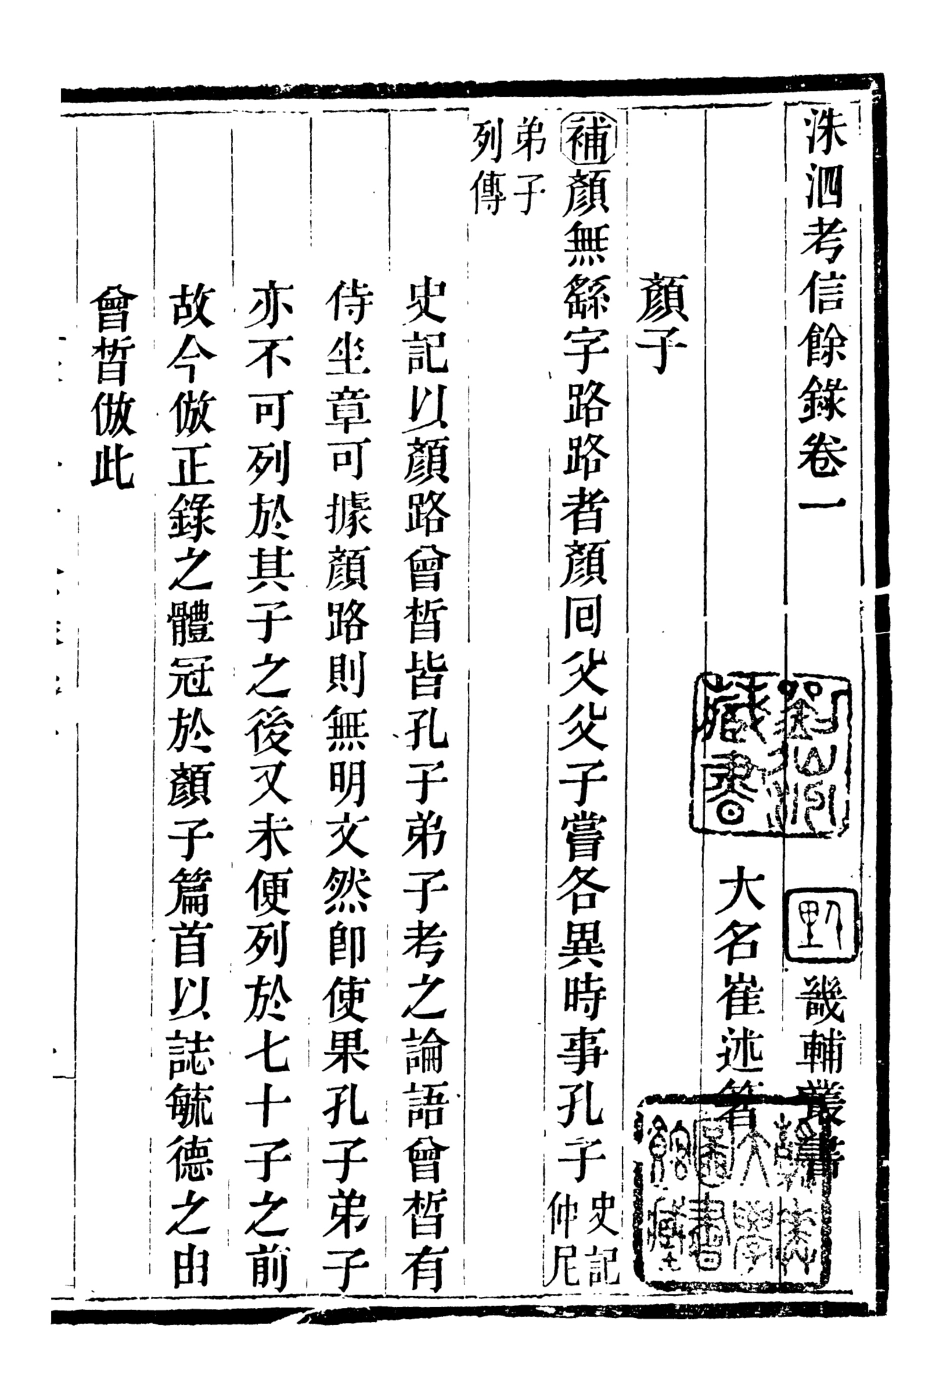 洙泗考信餘錄卷一
畿輔叢書
大名崔述著
顏子
補顏無繇字路路者顏回父父子嘗各異時事孔子史記仲尼
弟子列傳
史記以顏路曾皙皆孔子弟子考之論語曾皙有
侍坐章可據顏路則無明文然卽使果孔子弟子
亦不可列於其子之後又未便列於七十子之前
故今倣正錄之體冠於顏子篇首以誌毓德之由
曾皙倣此
藏書
燕京大學圖書館藏